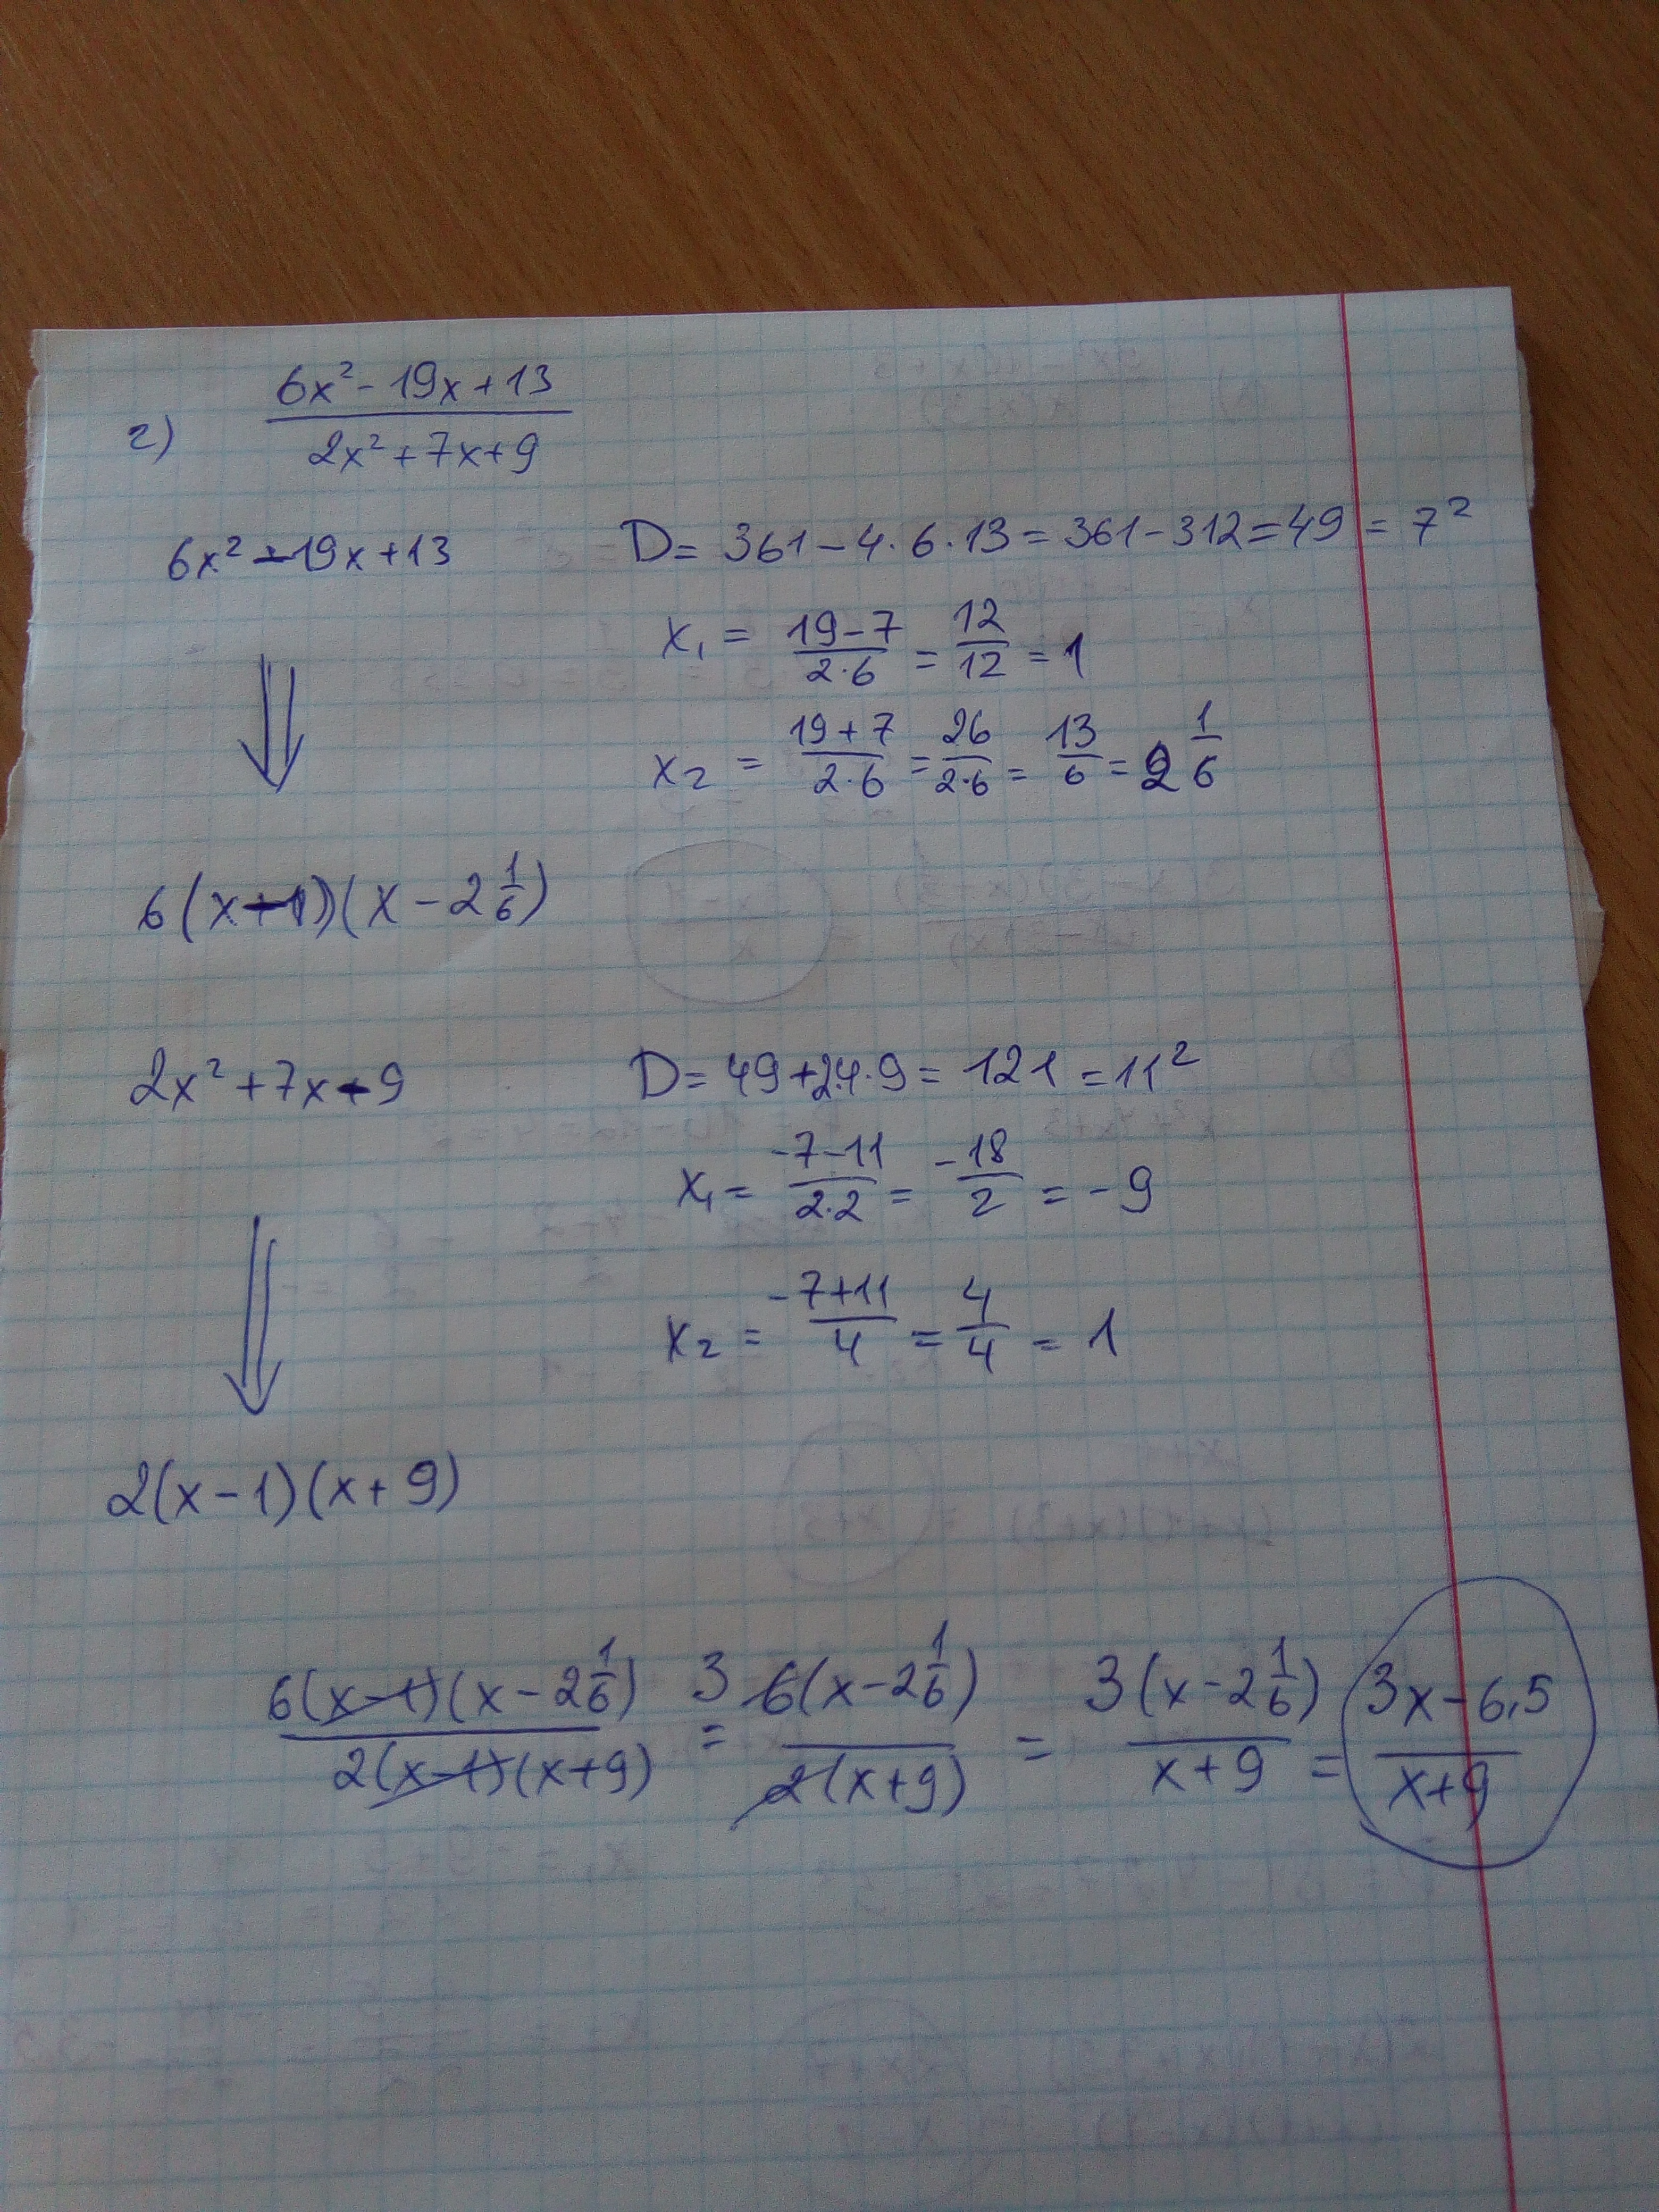 г) (6x² - 19x + 13)/(2x² + 7x + 9)
6x² - 19x + 13
D = 361 - 4·6·13 = 361 - 312 = 49 = 7²
x₁ = (19 - 7)/(2·6) = 12/12 = 1
x₂ = (19 + 7)/(2·6) = 26/(2·6) = 13/6 = 2 1/6
⇓
6(x - 1)(x - 2 1/6)
2x² + 7x - 9
D = 49 + 2·4·9 = 121 = 11²
x₁ = (-7 - 11)/(2·2) = -18/2 = -9
x₂ = (-7 + 11)/4 = 4/4 = 1
⇓
2(x - 1)(x + 9)
6(x - 1)(x - 2 1/6)/(2(x - 1)(x + 9)) = 3 6(x - 2 1/6)/(2(x + 9)) = 3(x - 2 1/6)/(x + 9) = (3x - 6,5)/(x + 9)